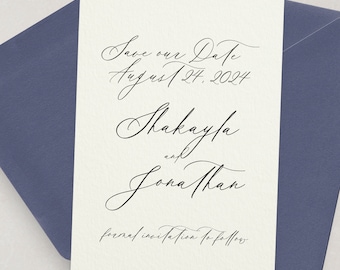 Save our Date
August 24, 2024
Shakayla
and
Jonathan
formal invitation to follow